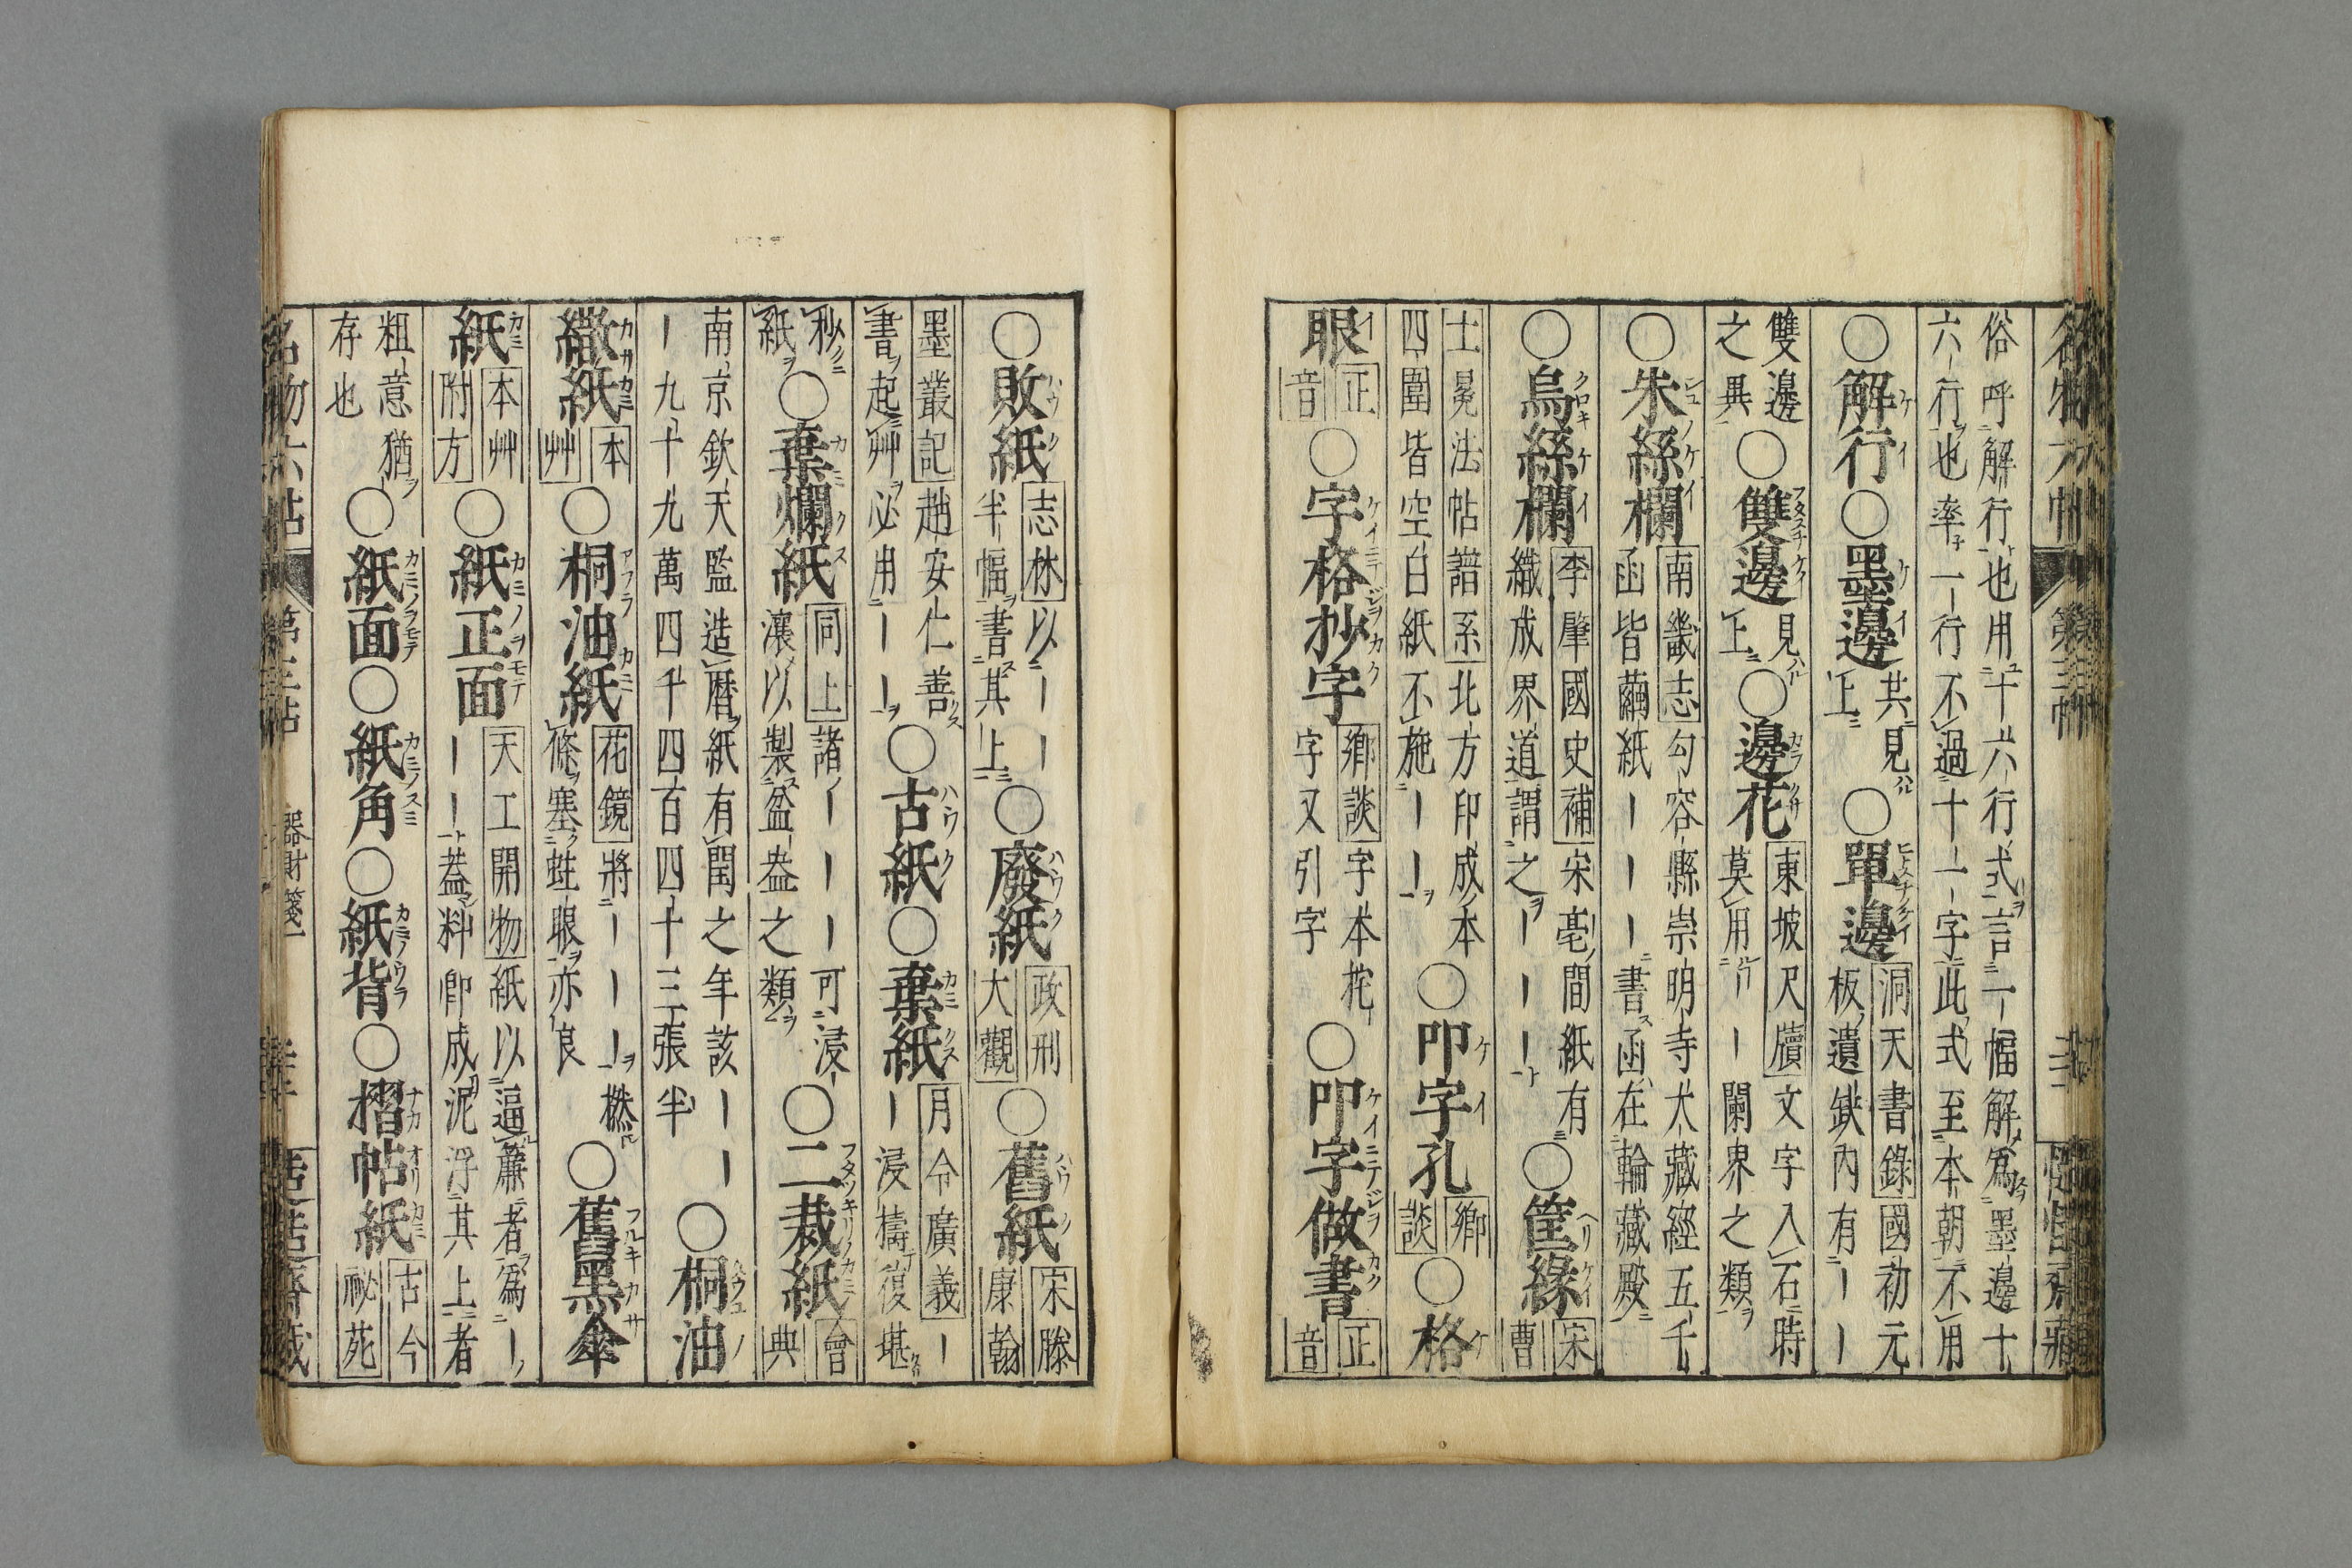 俗呼解行也用十六行式言一幅解為墨邊十
六行也率一行不過十一字此式至本朝不用
○解行○墨邊共見上○單邊洞天書錄國初元板遺鈌內有ーー
雙邊之異○雙邊見上○邊花東坡尺牘文字入石時莫用ーー闌界之類
○朱絲欄南畿志勾容縣崇明寺大藏經五千函皆繭紙ーーー書函在輪藏殿
○烏絲欄李肇國史補宋亳間紙有織成界道謂之ーーー○筐緣宋曹
士冕法帖譜系北方印成本四圍皆空白紙不施ーー○印字孔鄉談○格
眼正音○字格抄字鄉談字本㧌字又引字○印字做書正音
○敗紙志林以ーー半幅書其上○廢紙政刑大觀○舊紙宋滕康翰
墨叢記趙安仁善書起艸必用ーー○古紙○棄紙月令廣義ーー浸擣復堪
抄紙○棄爛紙同上諸ーーー可浸瀼以製盆盎之類○二裁紙會典
南京欽天監造曆紙有閏之年該ーーー九十九萬四千四百四十三張半○桐油
繖紙本艸○桐油紙花鏡將ーーー撚條塞蛀眼亦良○舊黑傘
紙本艸附方○紙正面天工開物紙以逼簾者為ーーー蓋料卽成泥浮其上者
粗意猶存也○紙面○紙角○紙背○摺帖紙古今祕苑
名物六帖 第三帖 器財箋一